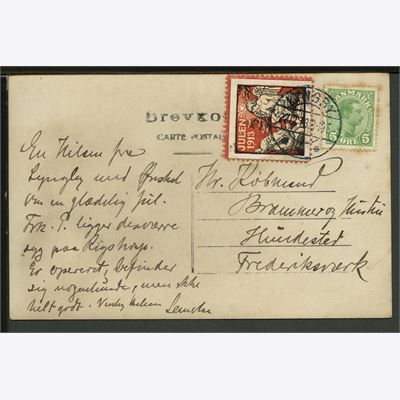 Brevko
CARTE POSTALE
JULEN
1913
LYNGBY
DANMARK
5 ØRE 5
En Hilsen fra
Lyngby med Ønsket
om en glædelig Jul.
Frk. P. ligger desværre
syg paa Rigshosp.
Er opereret, befinder
sig nogenlunde, men ikke
helt godt. Venlig Hilsen
Hr. Købmand
Brammer og Hustru
Hundested
Frederiksværk